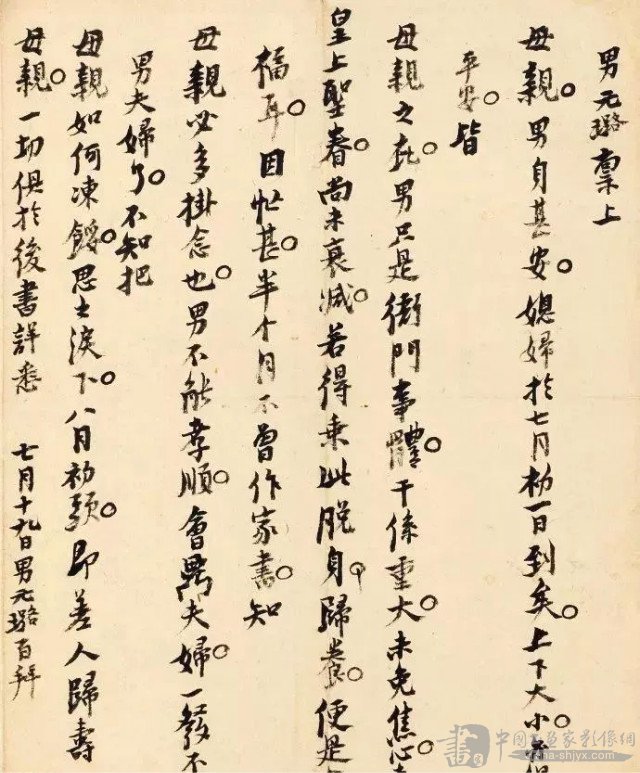 男元璐稟上
母親。男身甚安。媳婦於七月初一日到矣。上下大小
平安。皆
母親之庇。男只是衙門事體。干係重大。未免焦心
皇上聖眷。尚未衰減。若得乘此脫身。歸養。便是
福耳。因忙甚。半个月不曾作家書。知
母親必多掛念也。男不能孝順。會禺夫婦。一發不
男夫婦了。不知把
母親如何凍餒。思之淚下。八月初頭。即差人歸壽
母親。一切俱於後書詳悉 七月十九日男元璐百拜
書 中國書画家影像網
www.china-shjyx.com